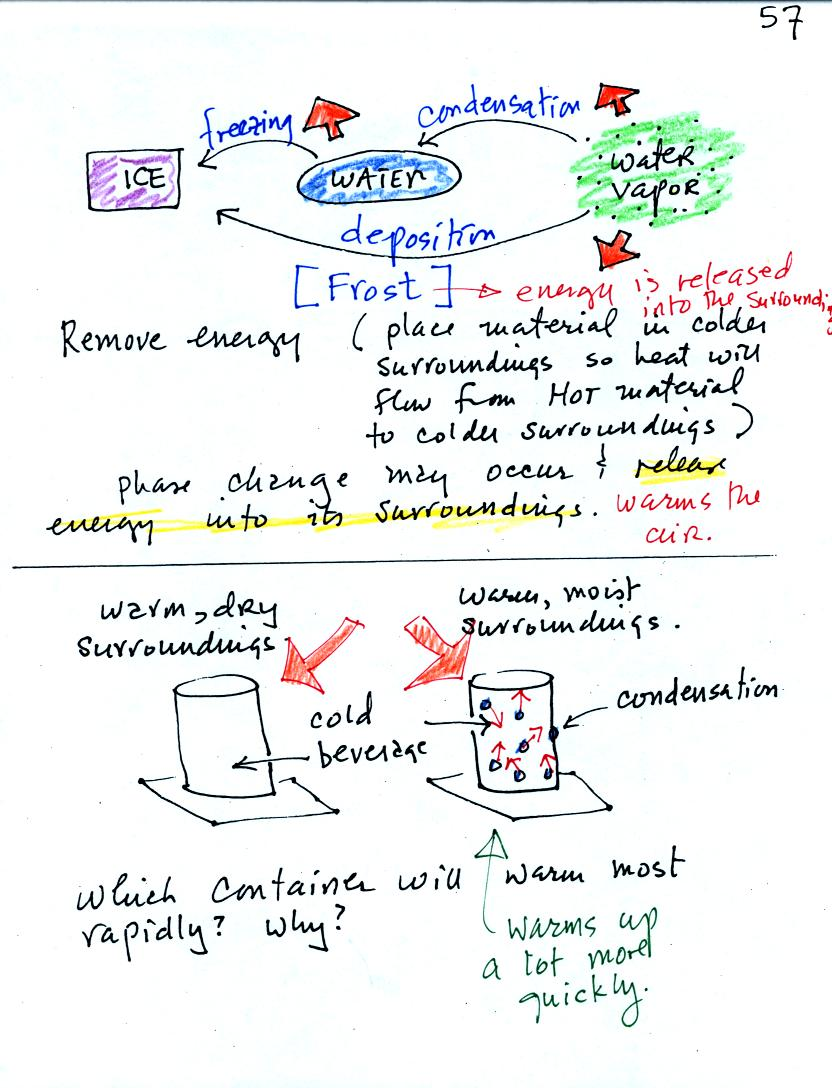 57
freezing
condensation
ICE
WATER
water
vapor
deposition
[Frost]
energy is released
into the surroundings
Remove energy (place material in colder
surroundings so heat will
flow from HOT material
to colder surroundings)
phase change may occur & release
energy into its surroundings. warms the
air.
warm, dry
surroundings
warm, moist
surroundings.
cold
beverage
condensation
which container will warm most
rapidly? why?
warms up
a lot more
quickly.